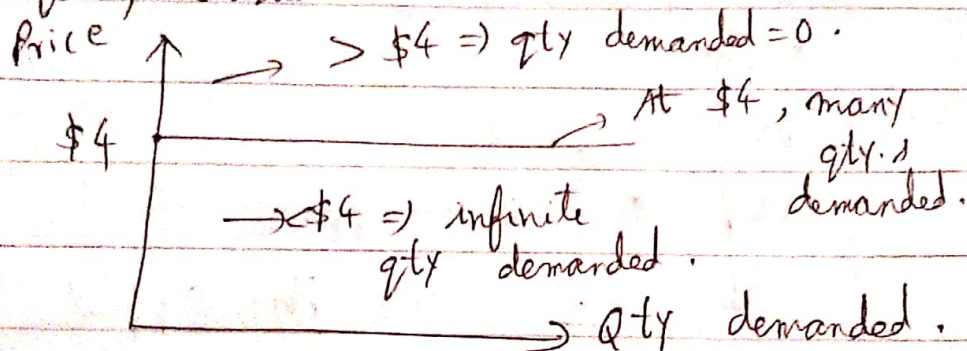 Price
> $4 => qty demanded = 0.
At $4, many
$4
qty.s
demanded.
<$4 => infinite
qty demanded.
Qty demanded.